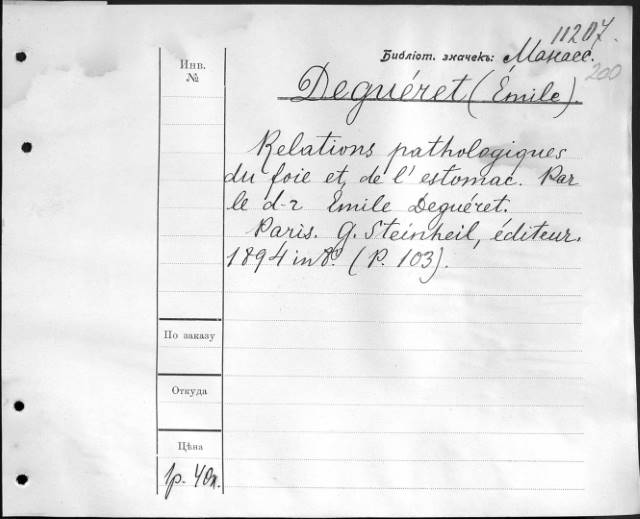 11207.
Библіот. значекъ: Манасс.
200
Инв.
№
Deguéret (Émile).
Relations pathologiques
du foie et de l'estomac. Par
le d-r Emile Deguéret.
Paris. G. Steinheil, éditeur.
1894 in 8º. (P. 103).
По заказу
Откуда
Цѣна
1р. 40к.